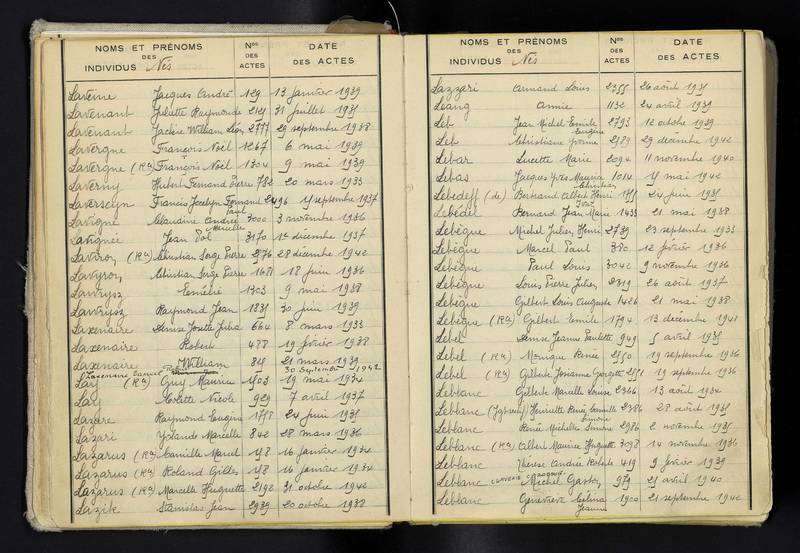 NOMS ET PRÉNOMS DES INDIVIDUS Nés
Nos DES ACTES
DATE DES ACTES
Laverine Jacques André 129 13 janvier 1939
Lavenant Juliette Raymonde 2121 31 juillet 1935
Lavenant Jackie William Léon 2777 29 septembre 1938
Lavergne François Noël 1267 6 mai 1939
Lavergne (Ra) François Noël 1304 9 mai 1939
Laverny Hubert Fernand Pierre 782 20 mars 1933
Laverseyn Francis Jocelyn Fernand 2496 5 septembre 1937
Paul
Lavigne Claudine Andrée 3000 3 novembre 1936
Marcelle
Lavignée Jean Pol 3170 1er décembre 1937
Laviron (Ra) Christian Serge Pierre 2176 28 décembre 1942
Lavyron Christian Serge Pierre 1681 18 juin 1936
Lavrysz 1303 9 mai 1938
Lavrysz Raymond Jean 1835 30 juin 1939
Laxenaire Denise Josette Julia 664 8 mars 1933
Laxenaire Robert 488 19 février 1938
Laxenaire William 811 21 mars 1939
Laxenaire Daniel 30 Septembre 1942
Lay (Ra) Guy Maurice 1403 19 mai 1934
Lay Colette Nicole 929 7 avril 1937
Lazare Raymond Eugène 1778 24 juin 1935
Lazari Yolande Marcelle 842 28 mars 1936
Lazarus (Ra) Camille Marcel 158 16 janvier 1934
Lazarus (Ra) Roland Gilles 158 16 janvier 1934
Lazarus (Ra) Marcelle Huguette 2192 31 octobre 1942
Lazik Stanislas Jean 2939 20 octobre 1932
NOMS ET PRÉNOMS DES INDIVIDUS Nés
Nos DES ACTES
DATE DES ACTES
Lazzari Armand Louis 2355 26 août 1935
Leang Annie 1132 24 avril 1939
Leb Jean Michel Emile 2793 12 octobre 1939
Eugène
Leb Christiane Yvonne 2189 29 décembre 1942
Lebar Lucette Marie 2094 11 novembre 1940
Lebas Jacques Yves Maurice 1014 5 mai 1942
Christian
Lebedeff (de) Bertrand Albert Henri 1775 24 juin 1935
Yves
Lebedel Bernard Jean Marie 1433 21 mai 1938
Lebègue Michel Julien Henri 2739 23 septembre 1933
Lebègue Marcel Paul 380 12 février 1936
Lebègue Paul Louis 3042 9 novembre 1936
Lebègue Louis Pierre Julien 2319 26 août 1937
Lebègue Gilbert Louis Auguste 1426 21 mai 1938
Lebègue (Ra) Gilbert Emile 1794 13 décembre 1941
Lebel Denise Jeanne Paulette 949 5 avril 1935
Lebel (Ra) Monique Renée 2550 19 septembre 1936
Lebel (Ra) Gilberte Josianne Georgette 2551 19 septembre 1936
Leblanc Gilberte Marcelle Louise 2366 13 août 1934
Leblanc Henriette Renée Camille 2386 28 août 1935
Simone
Leblanc Renée Michelle Simone 2986 2 novembre 1935
Leblanc (Ra) Albert Maurice Huguette 3098 14 novembre 1936
Leblanc Thérèse Andrée Roberte 419 9 février 1939
Leblanc Michel Gaston 979 21 avril 1940
Leblanc Geneviève Celina 1900 21 septembre 1942
Jeanne